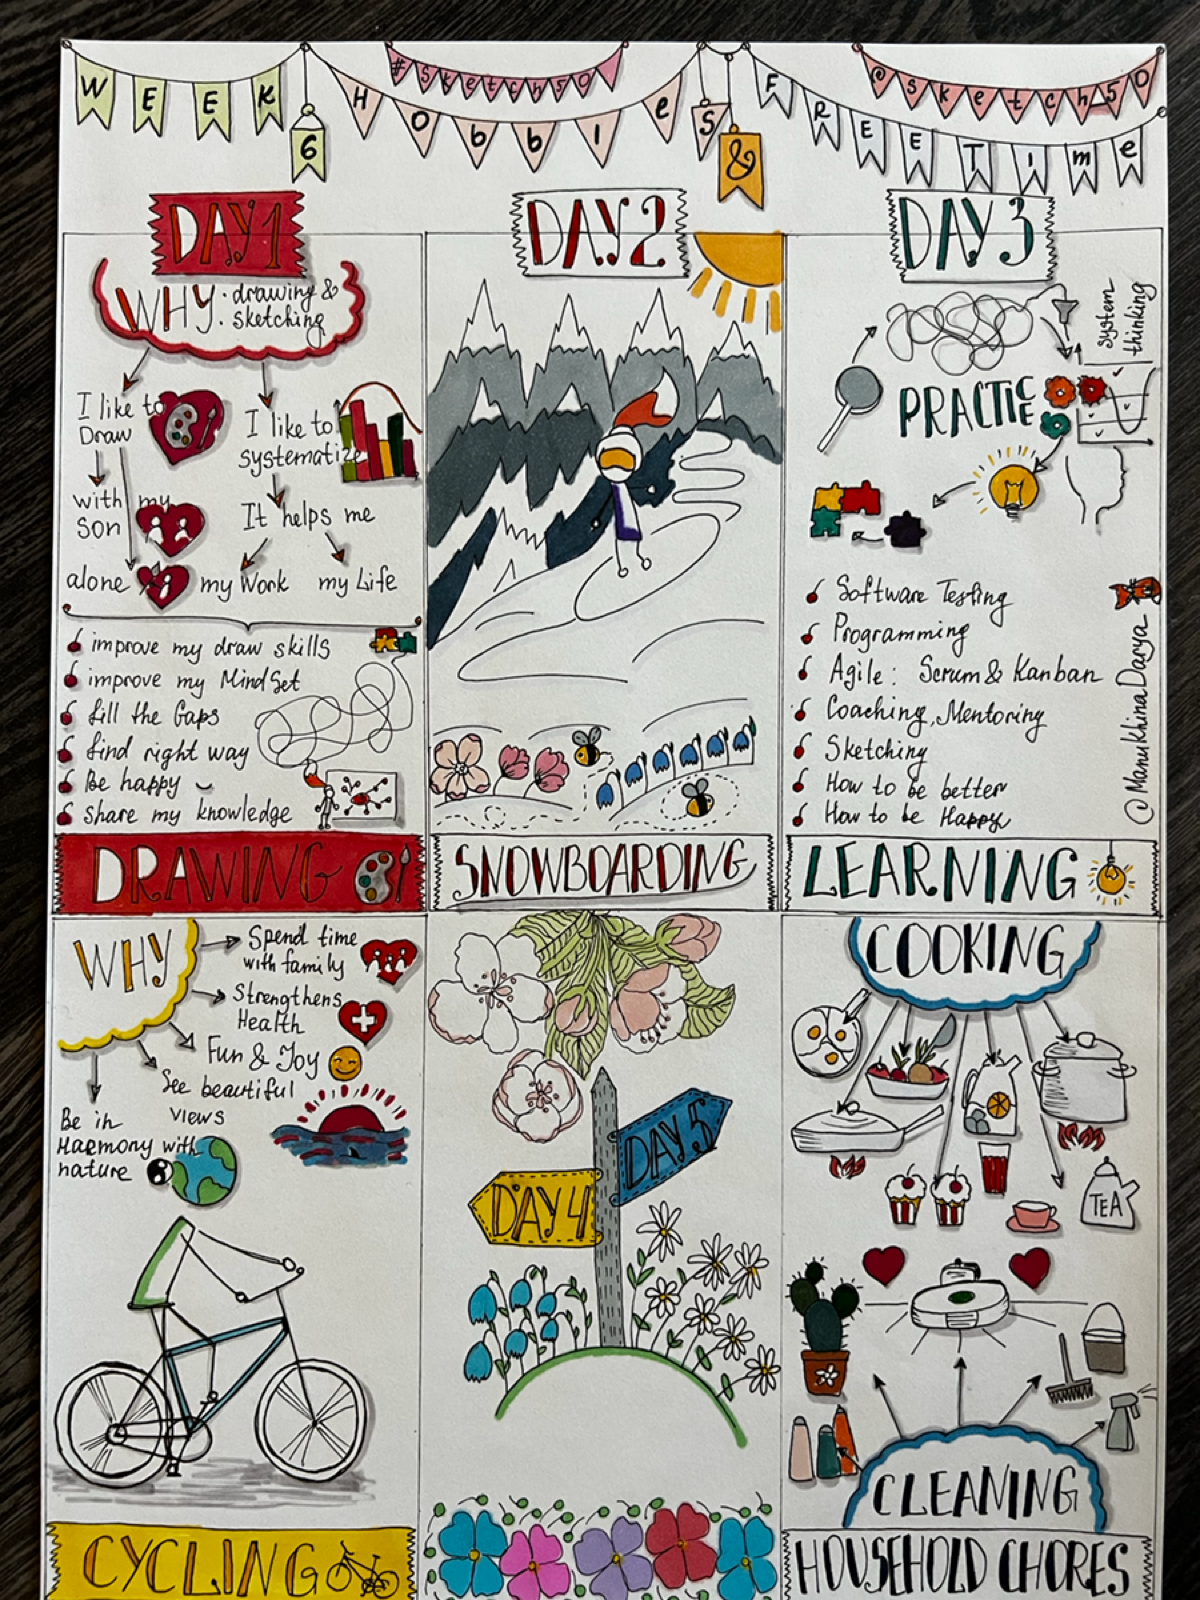 WEEK 6
Hobbies & FREETime
#sketch50
@sketch_50
DAY 1
WHY: drawing &
sketching
I like to
Draw
with my
son
alone
I like to
systematize
It helps me
my Work my Life
improve my draw skills
improve my MindSet
fill the Gaps
find right way
Be happy
share my knowledge
DRAWING
DAY 2
SNOWBOARDING
DAY 3
system
thinking
PRACTICE
Software Testing
Programming
Agile: Scrum & Kanban
Coaching, Mentoring
Sketching
How to be better
How to be Happy
@ManukhinaDarya
LEARNING
WHY
Spend time
with family
Strengthens
Health
Fun & Joy
See beautiful
views
Be in
Harmony with
nature
CYCLING
DAY 4
DAY 5
COOKING
TEA
CLEANING
HOUSEHOLD CHORES